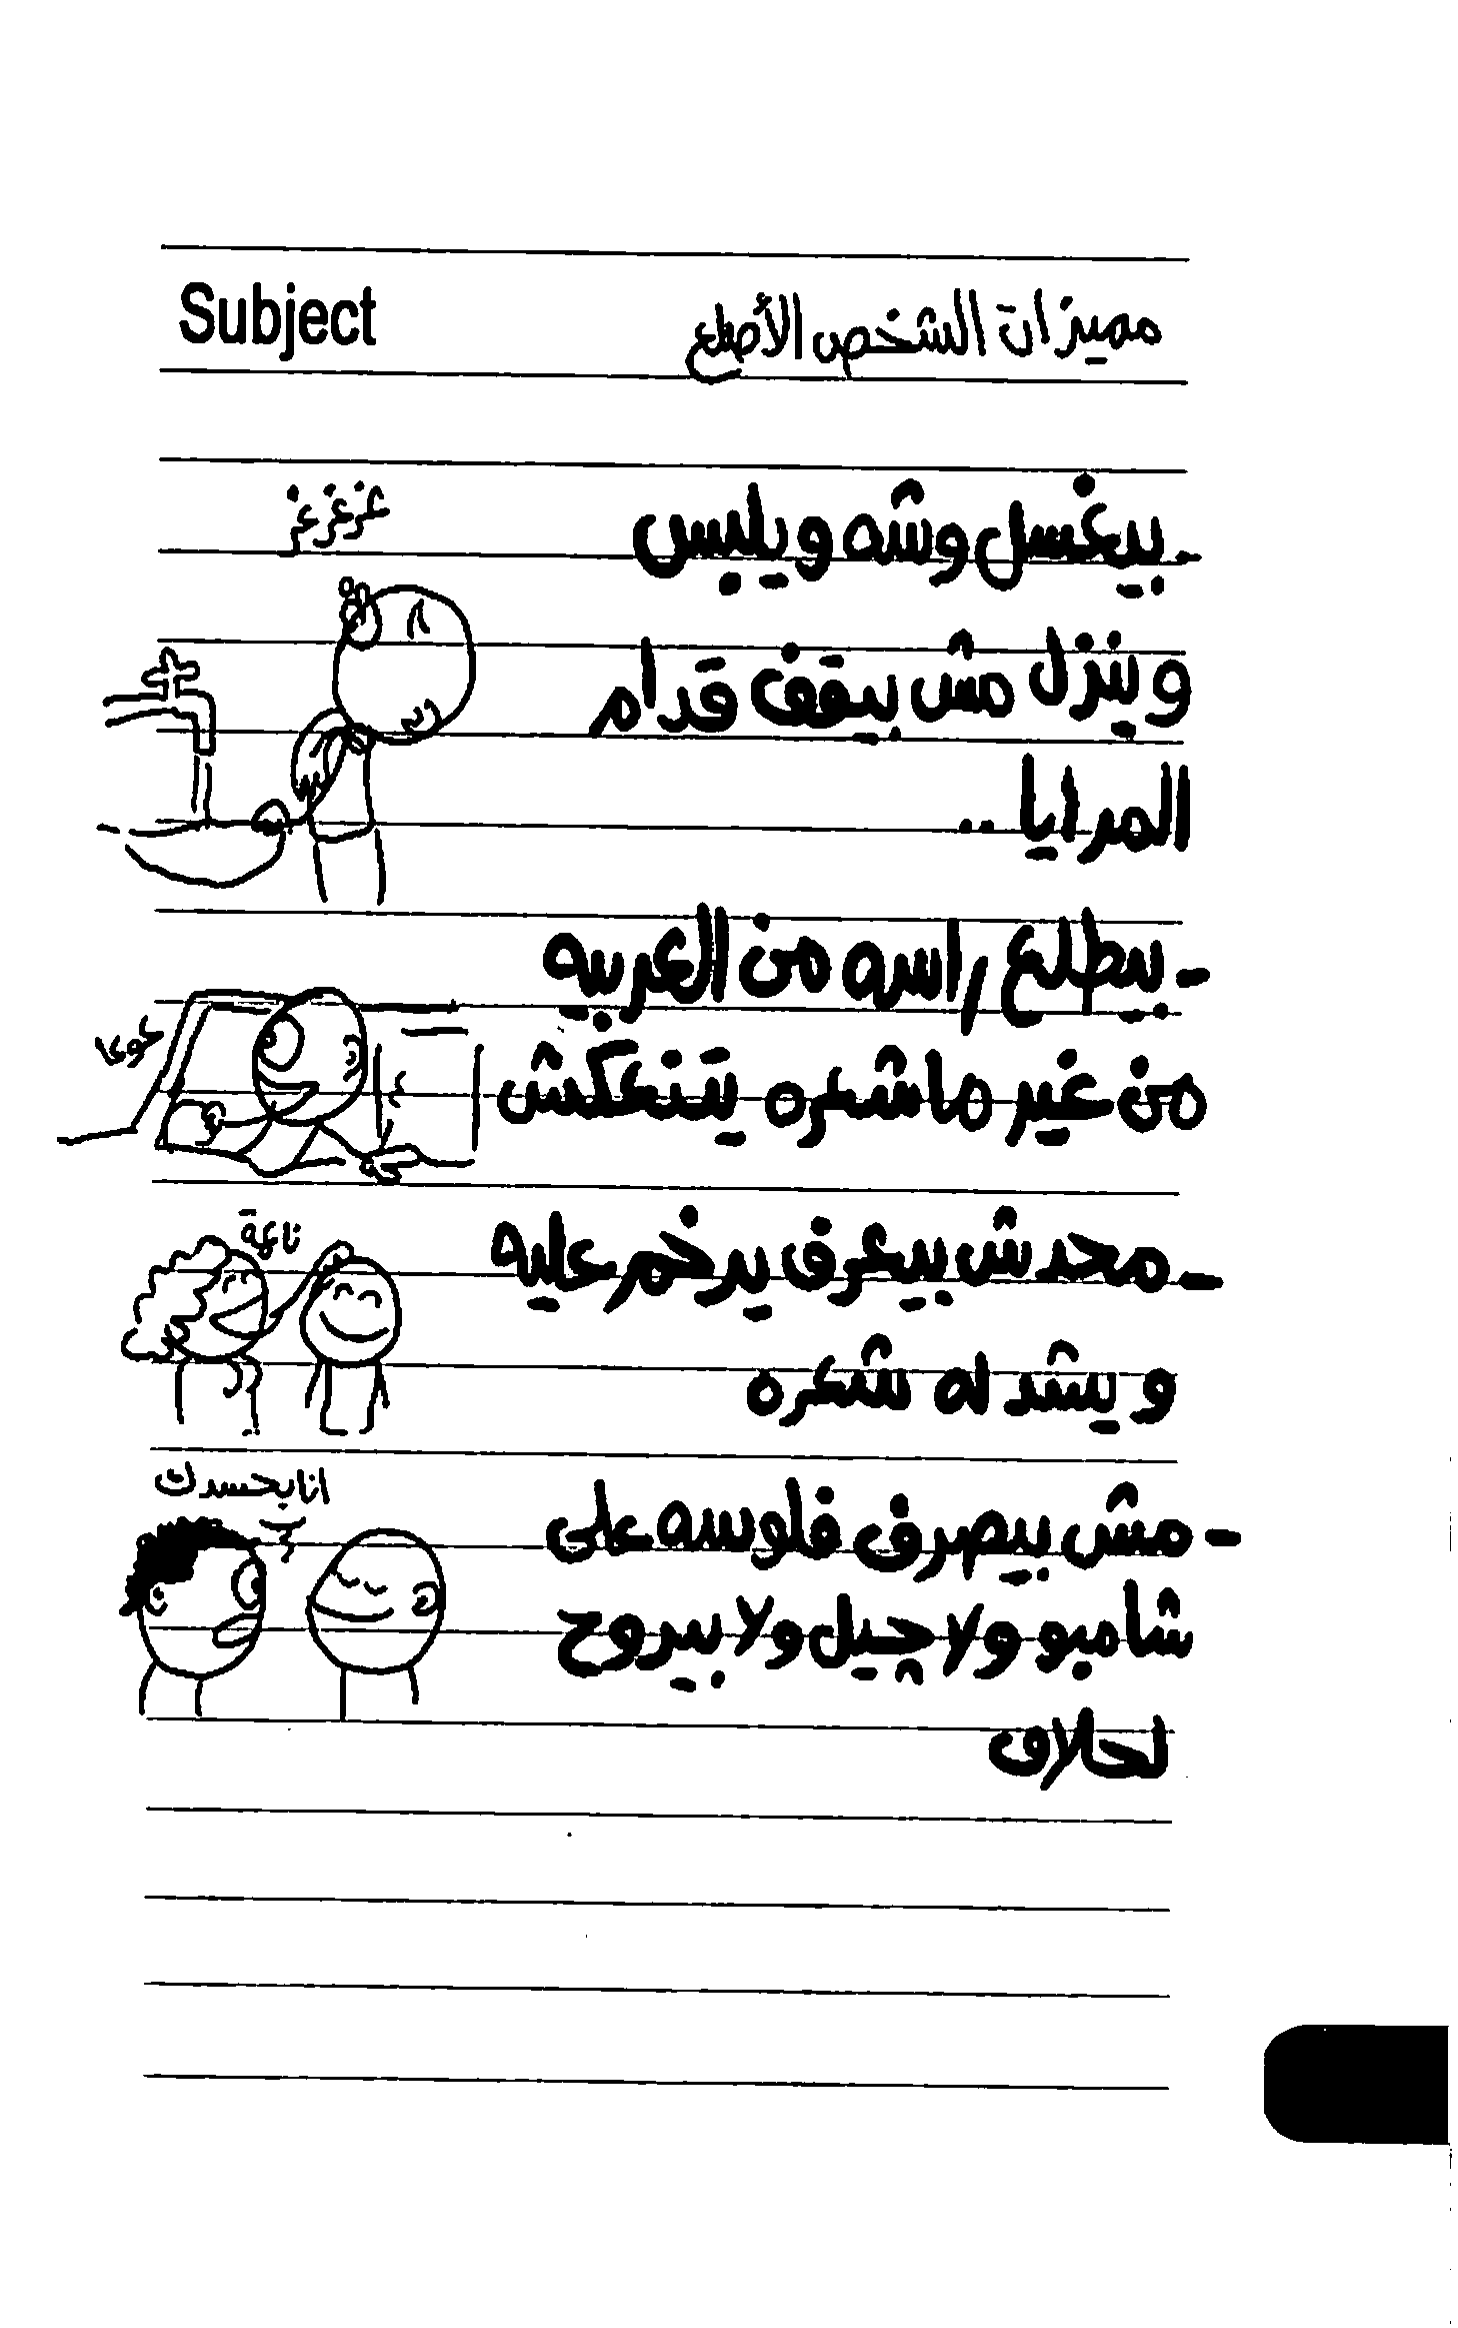 Subject
مميزات الشخص الأصلع
غزغزغز
- بيغسل وشه ويلبس
وينزل مش بيقف قدام
المرايا ..
- بيطلع راسه من العربيه
من غير ما شعره يتنعكش
- محدش بيعرف يرخم عليه
ويشد له شعره
ناعمة
انا بحسدك
- مش بيصرف فلوسه على
شامبو ولا چيل ولا بيروح
لحلاق